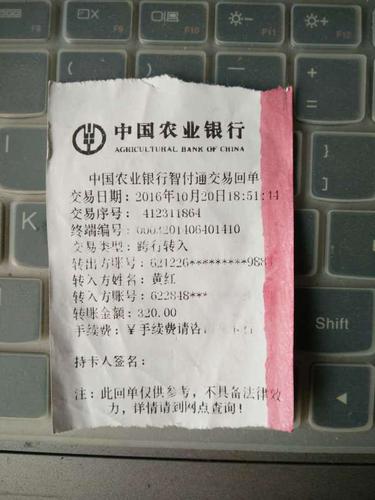 F8
F9
F10
F11
F12
中国农业银行
AGRICULTURAL BANK OF CHINA
中国农业银行智付通交易回单
交易日期：2016年10月20日18:51:44
交易序号： 412311864
终端编号：
交易类型：跨行转入
转出方账号：621226*********988
转入方姓名：黄红
转入方账号：622848***
转账金额：320.00
手续费：￥手续费请咨
持卡人签名：
注：此回单仅供参考，不具备法律效
力，详情请到网点查询！
Shift